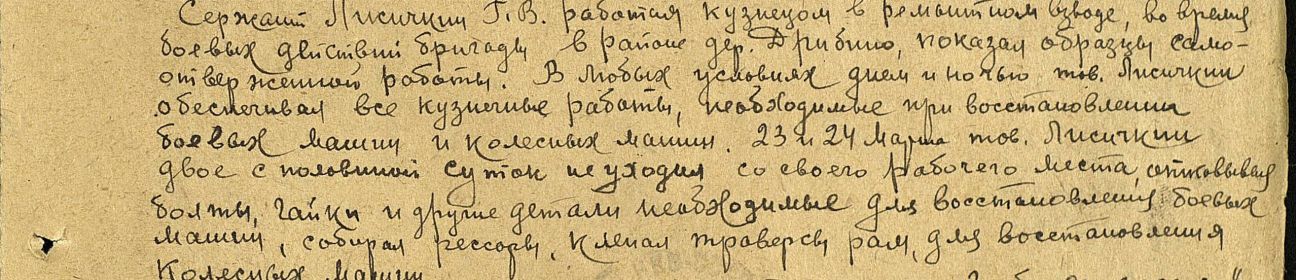 Сержант Лисичкин Г.В. работая кузнецом в ремонтном взводе, во время
боевых действий бригады в районе дер. Дрибино, показал образцы само-
отверженной работы. В любых условиях днем и ночью тов. Лисичкин
обеспечивал все кузнечные работы, необходимые при восстановлении
боевых машин и колесных машин. 23 и 24 марта тов. Лисичкин
двое с половиной суток не уходил со своего рабочего места, отковывая
болты, гайки и другие детали необходимые для восстановления боевых
машин, собирал рессоры, клепал траверсы рам, для восстановления
колесных машин.